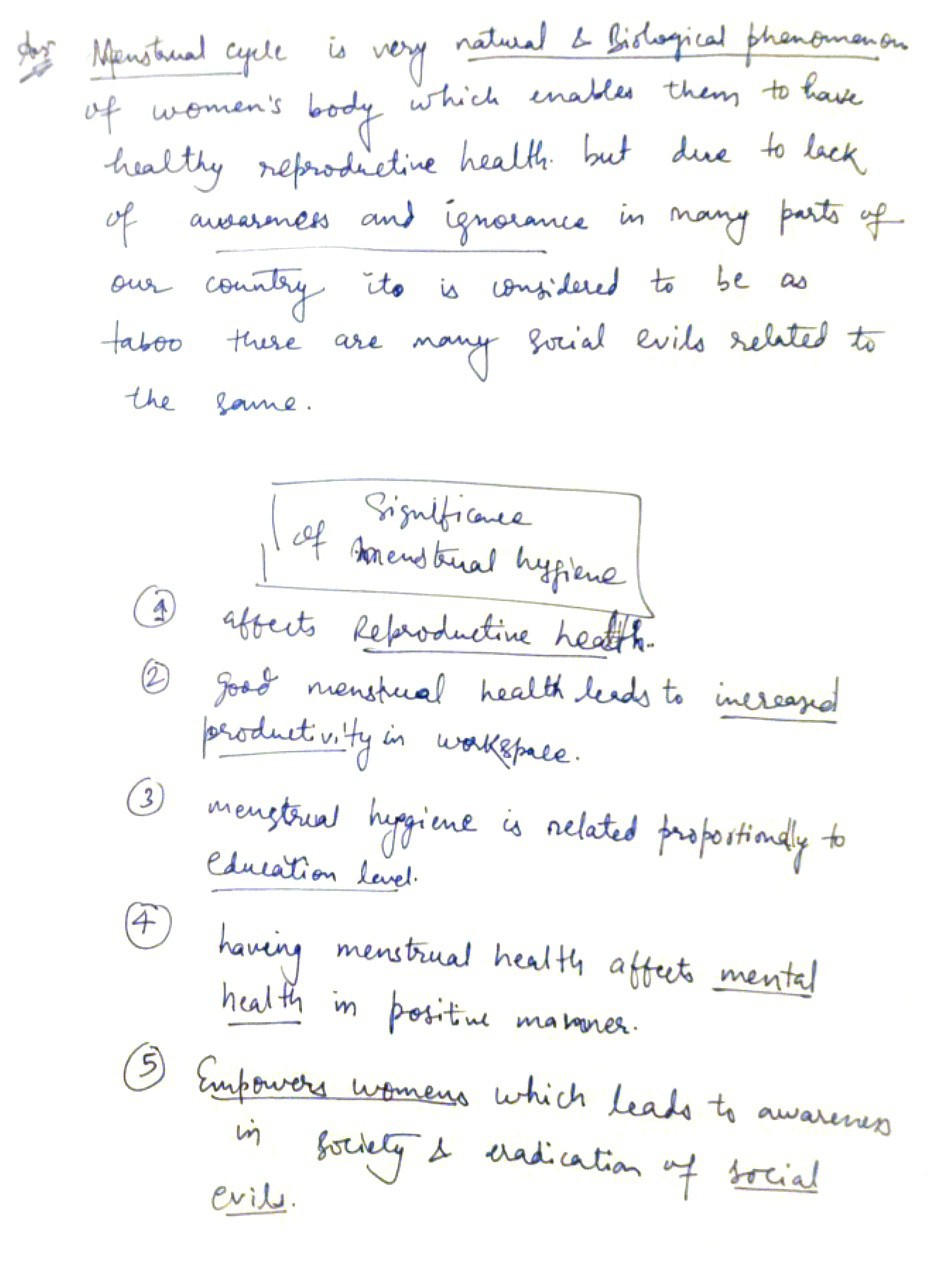 Ans Menstrual cycle is very natural & Biological phenomenon
of women's body which enables them to have
healthy reproductive health. but due to lack
of awareness and ignorance in many parts of
our country its is considered to be as
taboo there are many social evils related to
the same.
Significance
of menstrual hygiene
① affects Reproductive health.
② good menstrual health leads to increased
productivity in workspace.
③ menstrual hygiene is related proportionally to
education level.
④ having menstrual health affects mental
health in positive manner.
⑤ Empowers womens which leads to awareness
in society & eradication of social
evils.